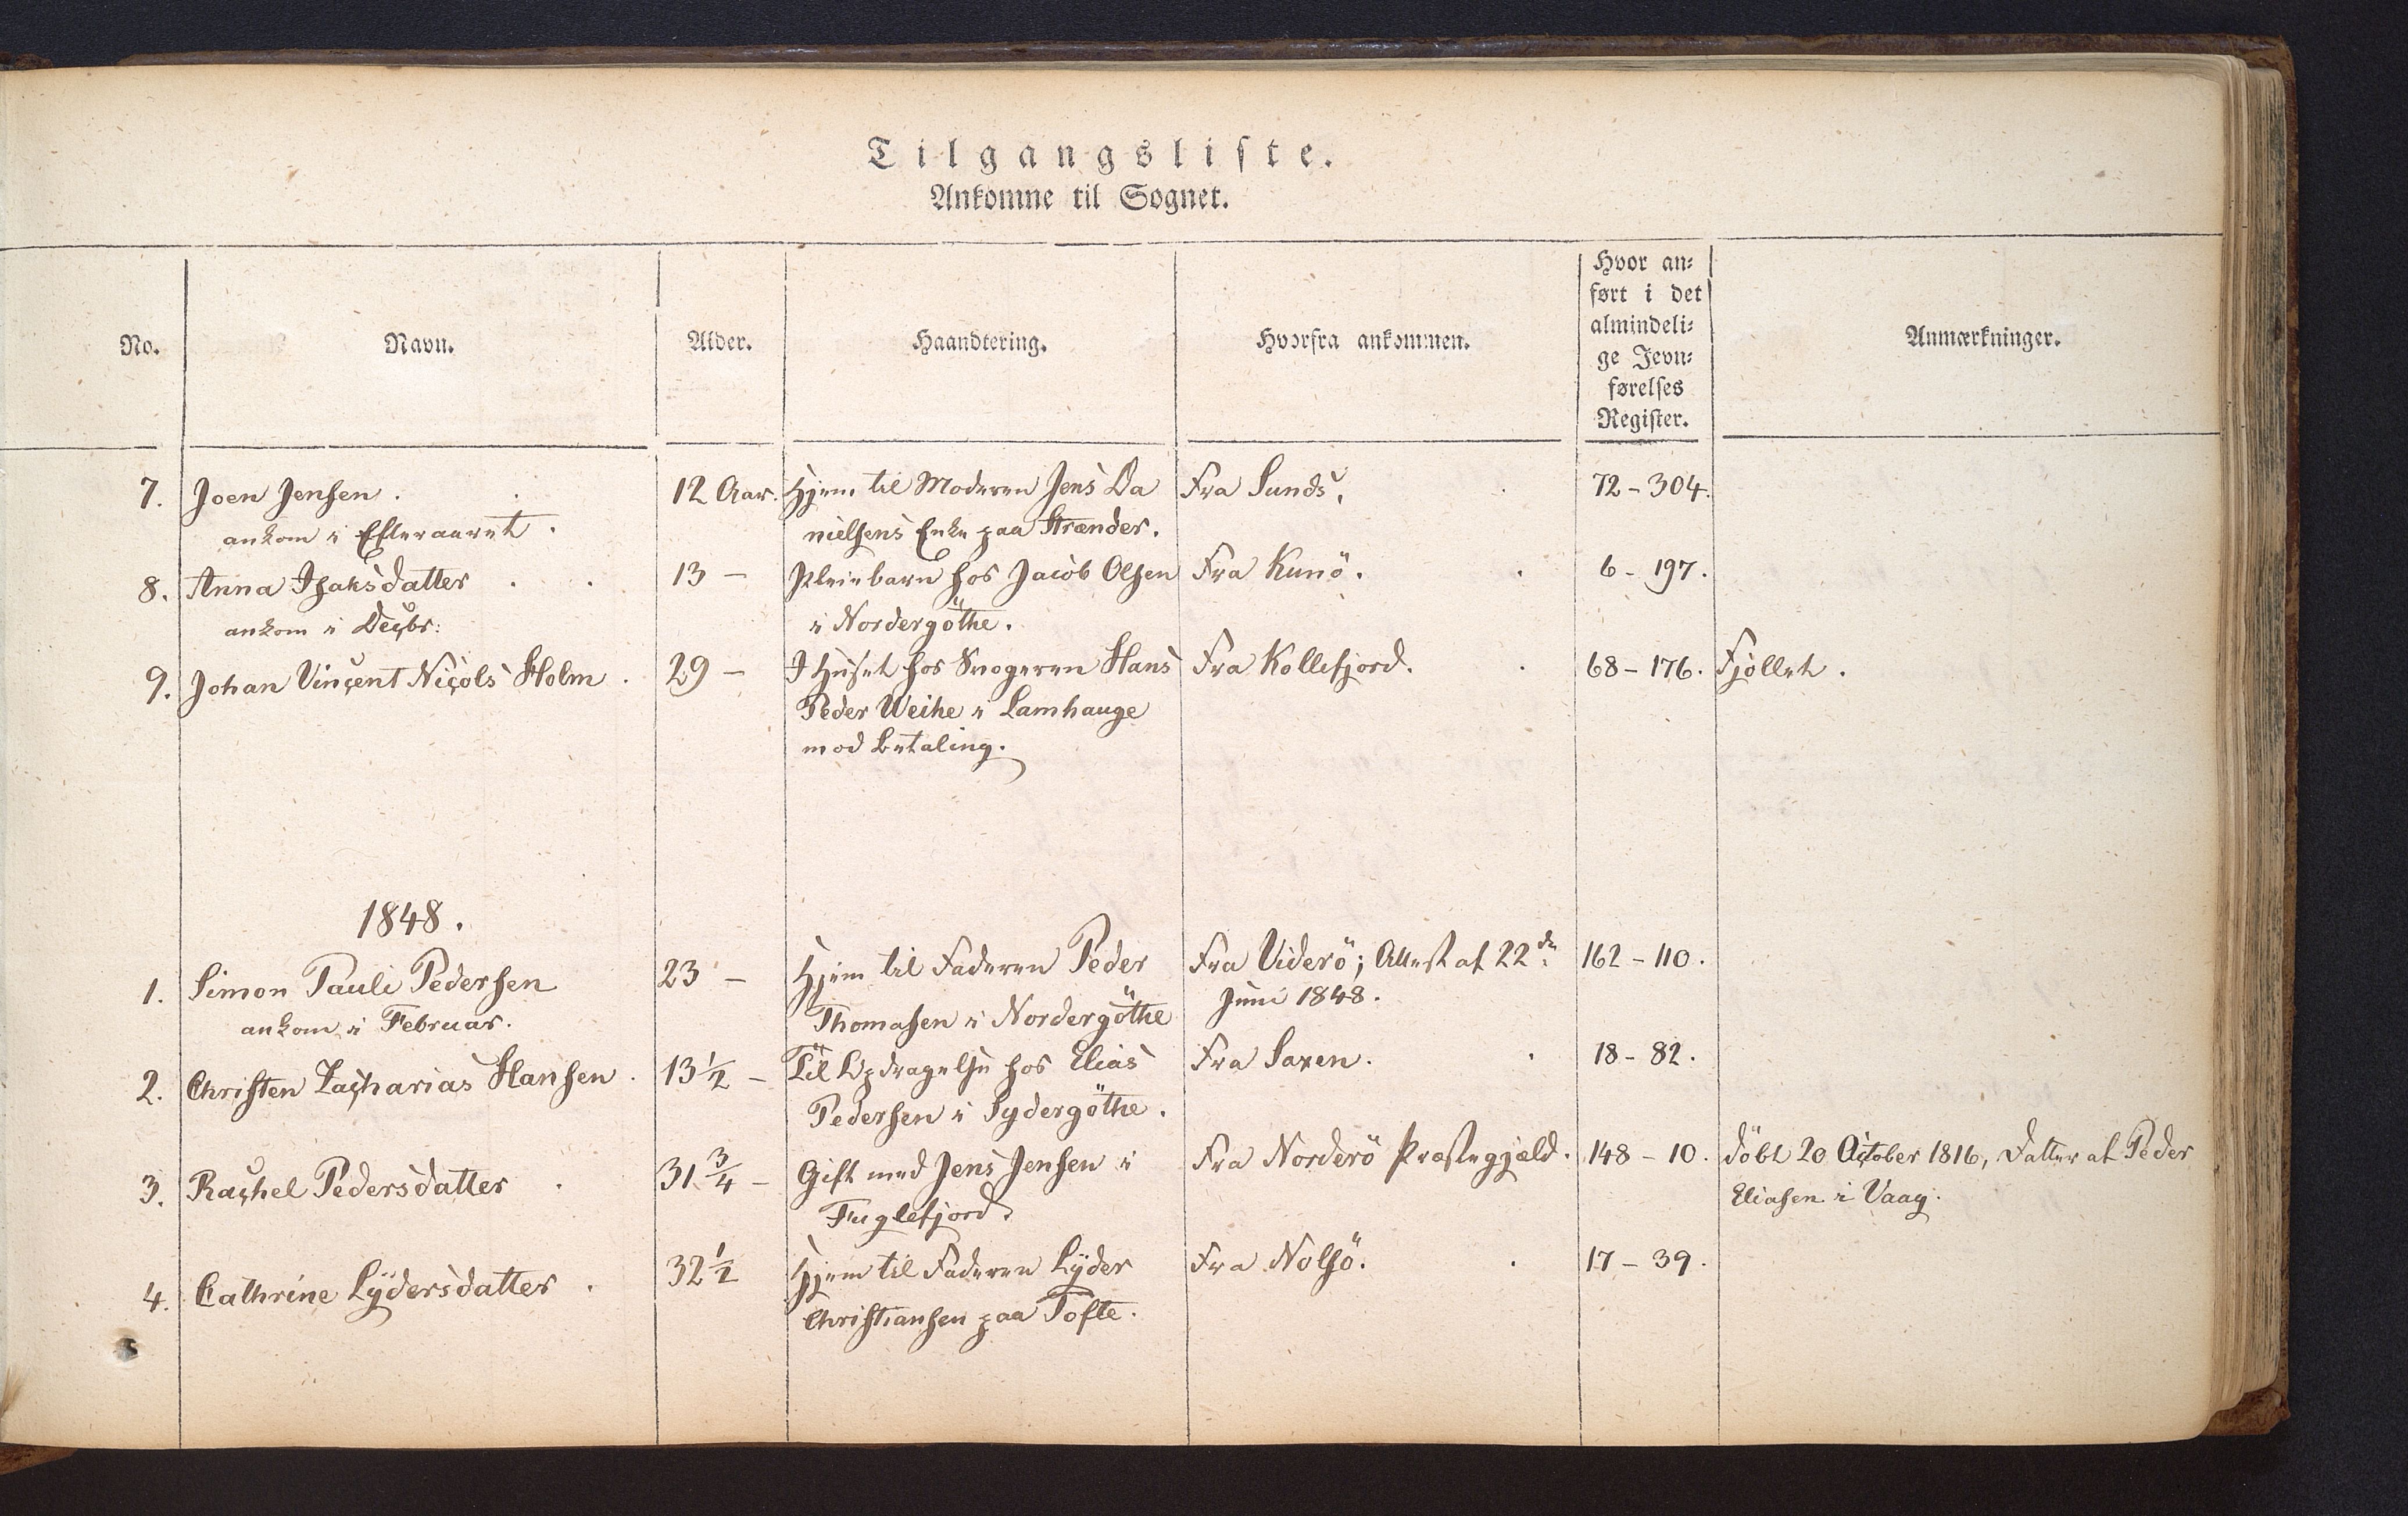 Tilgangsliste.
Ankomne til Sognet.
No. Navn. Alder. Haandtering. Hvorfra ankommen. Hvor an=
ført i det
almindeli=
ge Jevn=
førelses
Register. Anmærkninger.
7. Joen Jensen. 12 Aar. Hjem til Moderen Jens Da Fra Sunds. 72-304.
ankom i Efteraaret. nielsens Enke paa Strænder.
8. Anna Isaksdatter 13 - Pleiebarn hos Jacob Olsen Fra Kunö. 6-197.
ankom i Decbr: i Nordergöthe.
9. Johan Vincent Nicols Holm. 29 - I Huset hos Svogeren Hans Fra Kollefjord. 68-176. Fjollet.
Peder Weihe i Lamhauge
mod Betaling.
1848.
1. Simon Pauli Pedersen 23 - Hjem til Faderen Peder Fra Viderö; Attest af 22de 162-110.
ankom i Februar. Thomasen i Nordergöthe Juni 1848.
2. Christen Zacharias Hansen. 13 1/2 - Til Opdragelse hos Elias Fra Saxen. 18-82.
Pedersen i Sydergöthe.
3. Rachel Pedersdatter 31 3/4 - Gift med Jens Jensen i Fra Norderö Præstegjæld. 148-10. Döbt 20 October 1816, Datter af Peder
Fuglefjord. Eliasen i Vaag.
4. Cathrine Lÿdersdatter. 32 1/2 Hjem til Faderen Lÿder Fra Nolsö. 17-39.
Christiansen paa Tofte.